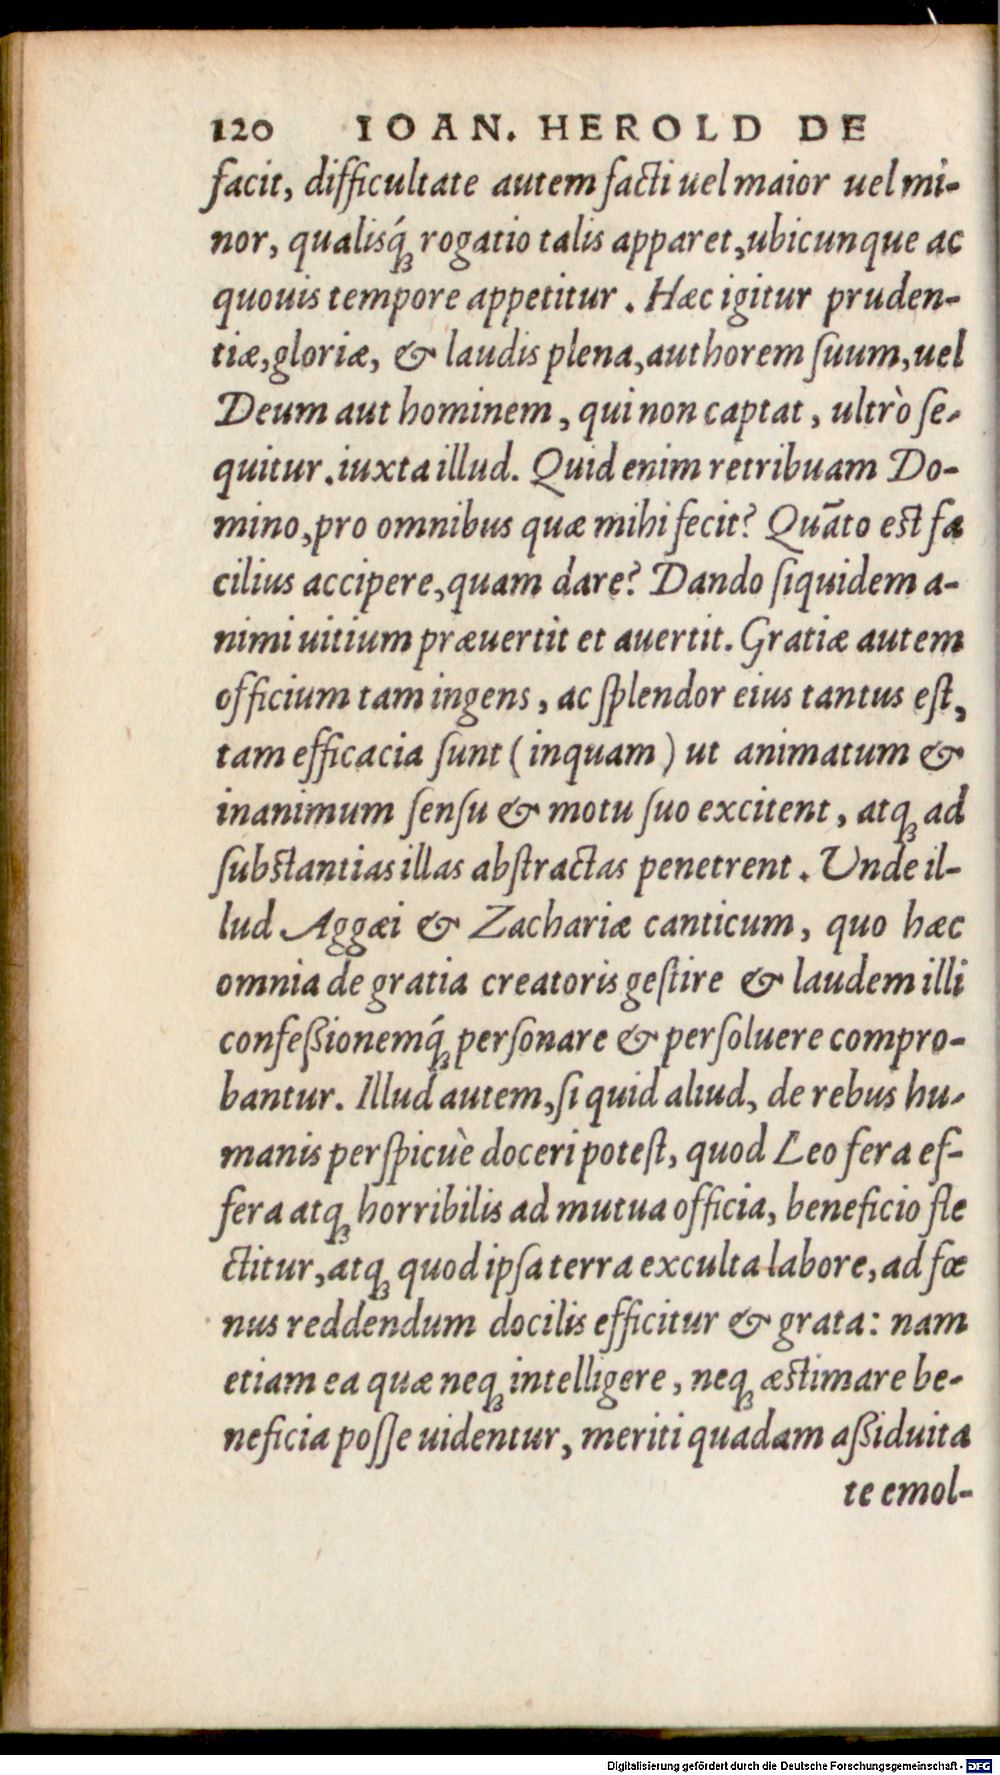 120 IOAN. HEROLD DE
facit, difficultate autem facti uel maior uel mi-
nor, qualisq́ꝫ rogatio talis apparet, ubicunque ac
quouis tempore appetitur. Hæc igitur pruden-
tiæ, gloriæ, & laudis plena, authorem ſuum, uel
Deum aut hominem, qui non captat, ultrò ſe-
quitur. iuxta illud. Quid enim retribuam Do-
mino, pro omnibus quæ mihi fecit? Quāto est fa
cilius accipere, quam dare? Dando ſiquidem a-
nimi uitium præuertit et auertit. Gratiæ autem
officium tam ingens, ac ſplendor eius tantus eſt,
tam efficacia ſunt (inquam) ut animatum &
inanimum ſenſu & motu ſuo excitent, atqꝫ ad
ſubstantias illas abſtractas penetrent. Unde il-
lud Aggæi & Zachariæ canticum, quo hæc
omnia de gratia creatoris geſtire & laudem illi
confeßionemq́ꝫ perſonare & perſoluere compro-
bantur. Illud autem, ſi quid aliud, de rebus hu-
manis perſpicuè doceri poteſt, quod Leo fera ef-
fera atqꝫ horribilis ad mutua officia, beneficio fle
ctitur, atqꝫ quod ipſa terra exculta labore, ad fœ
nus reddendum docilis efficitur & grata: nam
etiam ea quæ neqꝫ intelligere, neqꝫ æstimare be-
neficia poſſe uidentur, meriti quadam aßiduita
te emol-
Digitalisierung gefördert durch die Deutsche Forschungsgemeinschaft - DFG